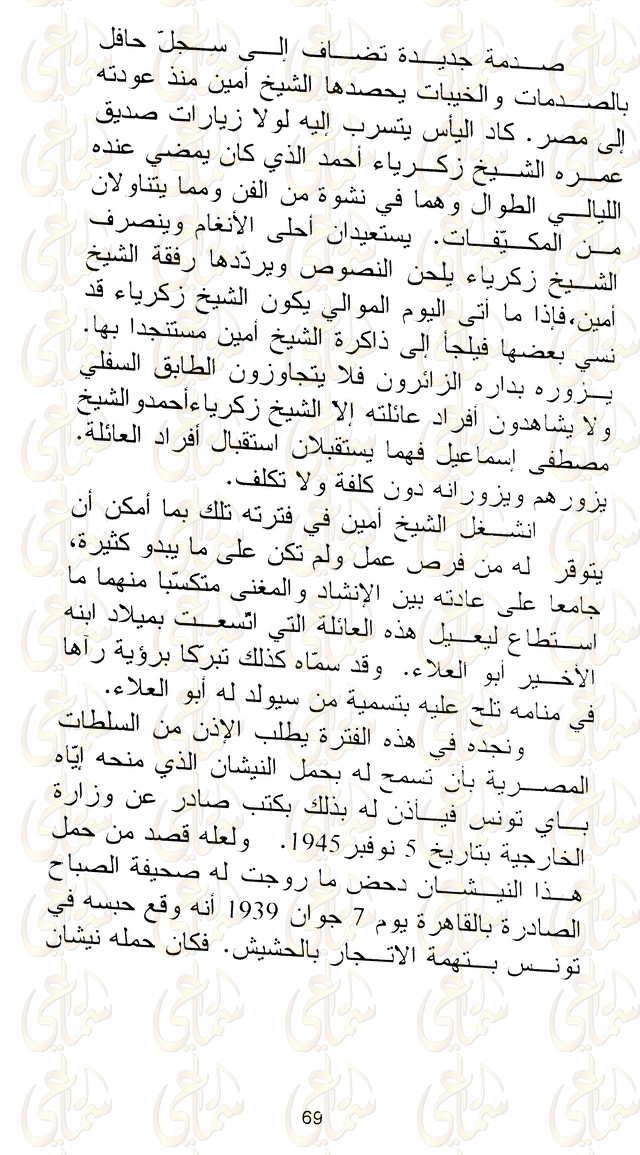 صدمة جديدة تضاف إلى سجلّ حافل
بالصدمات والخيبات يحصدها الشيخ أمين منذ عودته
إلى مصر. كاد اليأس يتسرب إليه لولا زيارات صديق
عمره الشيخ زكرياء أحمد الذي كان يمضي عنده
الليالي الطوال وهما في نشوة من الفن ومما يتناولان
من المكيّفات. يستعيدان أحلى الأنغام وينصرف
الشيخ زكرياء يلحن النصوص ويردّدها رفقة الشيخ
أمين،فإذا ما أتى اليوم الموالي يكون الشيخ زكرياء قد
نسي بعضها فيلجأ إلى ذاكرة الشيخ أمين مستنجدا بها.
يزوره بداره الزائرون فلا يتجاوزون الطابق السفلي
ولا يشاهدون أفراد عائلته إلا الشيخ زكرياءأحمدوالشيخ
مصطفى إسماعيل فهما يستقبلان استقبال أفراد العائلة.
يزورهم ويزورانه دون كلفة ولا تكلف.
انشغل الشيخ أمين في فترته تلك بما أمكن أن
يتوفر له من فرص عمل ولم تكن على ما يبدو كثيرة،
جامعا على عادته بين الإنشاد والمغنى متكسّبا منهما ما
استطاع ليعيل هذه العائلة التي اتّسعت بميلاد ابنه
الأخير أبو العلاء. وقد سمّاه كذلك تبركا برؤية رآها
في منامه تلح عليه بتسمية من سيولد له أبو العلاء.
ونجده في هذه الفترة يطلب الإذن من السلطات
المصرية بأن تسمح له بحمل النيشان الذي منحه إيّاه
باي تونس فيأذن له بذلك بكتب صادر عن وزارة
الخارجية بتاريخ 5 نوفبر1945. ولعله قصد من حمل
هذا النيشان دحض ما روجت له صحيفة الصباح
الصادرة بالقاهرة يوم 7 جوان 1939 أنه وقع حبسه في
تونس بتهمة الاتجار بالحشيش. فكان حمله نيشان
69
سماعي